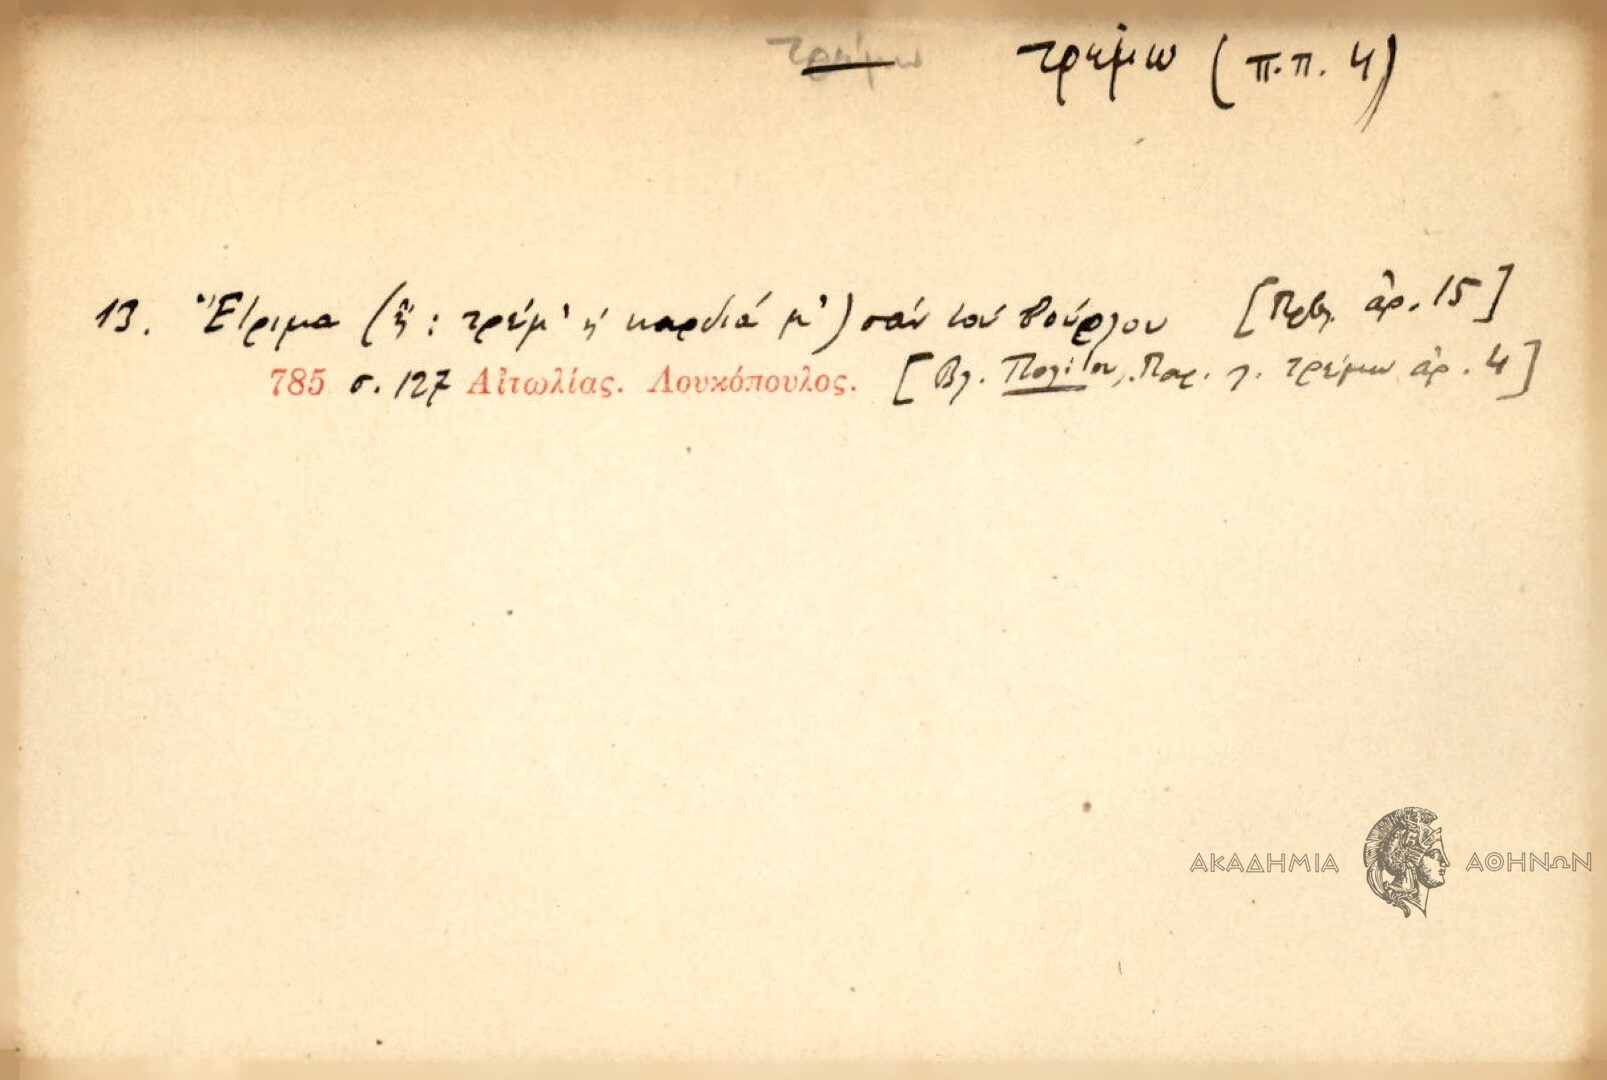 τρέμω τρέμω (π.π. 4)
13. Ἔτριμα (ἤ: τρέμ' ἡ καρδιά μ') σάν τού βούρλου [Πρβλ. ἀρ. 15]
785 σ. 127 Αἰτωλίας. Λουκόπουλος. [Βλ. Πολίτου, Παρ. λ. τρέμω ἀρ. 4]
ΑΚΑΔΗΜΙΑ ΑΘΗΝΩΝ